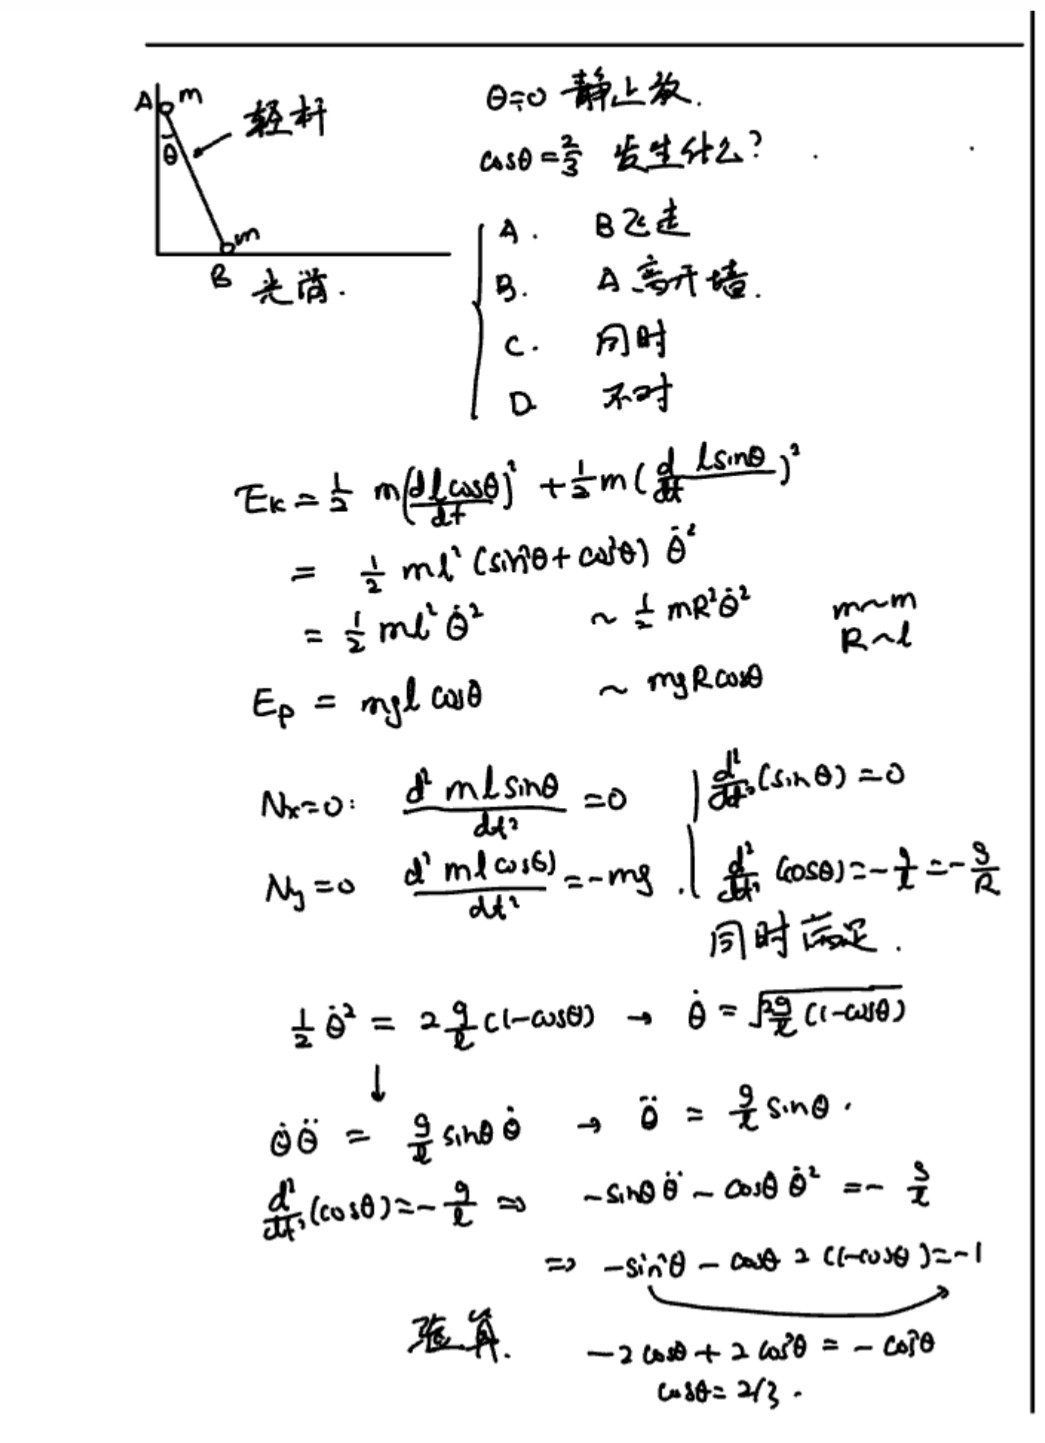 A m
轻杆
θ
m
B 光滑.
θ=0 静止放.
cosθ=2/3 发生什么?
A. B飞走
B. A离开墙.
C. 同时
D 不对
E_k = 1/2 m(dlcosθ/dt)² + 1/2 m(d/dt lsinθ)²
= 1/2 ml² (sin²θ+cos²θ) θ̇²
= 1/2 ml² θ̇² ~ 1/2 mR²θ̇² m~m
R~l
E_p = mgl cosθ ~ mgRcosθ
N_x=0: d² mlsinθ/dt² =0 d²/dt²(sinθ)=0
N_y=0 d² mlcosθ/dt² =-mg. d²/dt²(cosθ)=-g/l=-g/R
同时满足.
1/2 θ̇² = 2 g/l (1-cosθ) → θ̇ = √(2g/l (1-cosθ))
↓
θ̇θ̈ = g/l sinθ θ̇ → θ̈ = g/l sinθ.
d²/dt²(cosθ)=-g/l ⇒ -sinθ θ̈ - cosθ θ̇² = - g/l
⇒ -sin²θ - cosθ 2 (1-cosθ)=-1
算. -2cosθ + 2cos²θ = -cos²θ
cosθ=2/3.